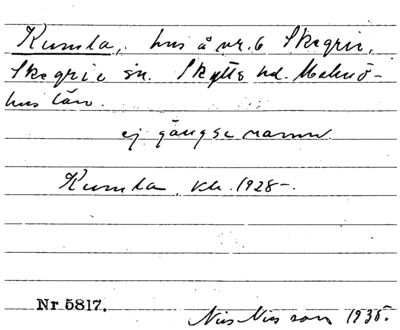 Kumla, hus å nr. 6 Skegrie,
Skegrie sn. Skytts hd. Malmö-
hus län.
ej gängse namn
Kumla, kb. 1928-.
Nr. 5817.
Nils Nilsson 1935.